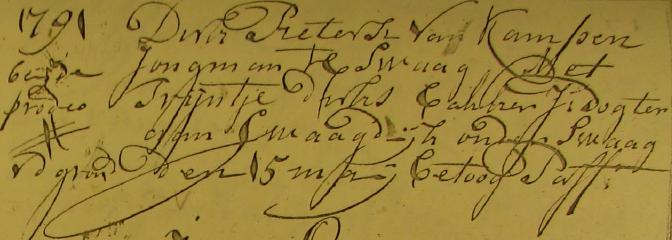 1791 Dirk Pietersz Van Kampen
beijde Jongman te Swaag Met
prodeo Trijntje Dirks Bakker J: dogter
van Swaagdijk onder Swaag
den 15 maij betoog Pass: